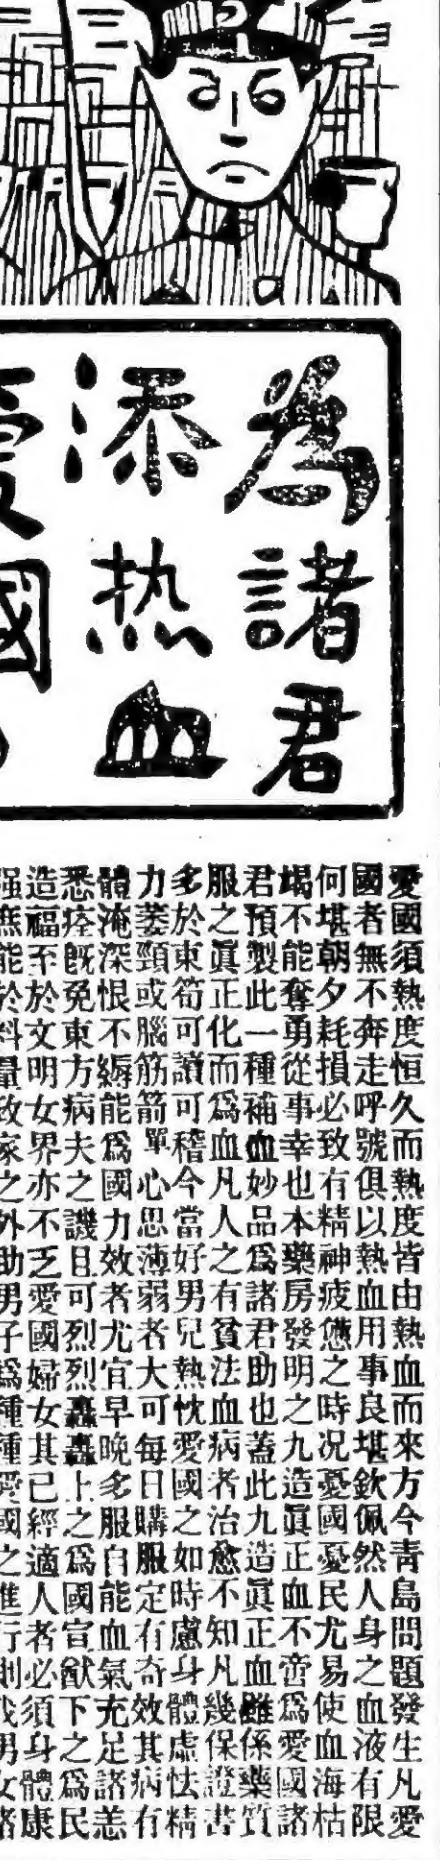 為諸君
添热血
愛國
愛國須熱度恒久而熱度皆由熱血而來方今青島問題發生凡愛
國者無不奔走呼號俱以熱血用事良堪欽佩然人身之血液有限
何堪朝夕耗損必致有精神疲憊之時况憂國憂民尤易使血海枯
竭不能奪勇從事幸也本藥房發明之九造眞正血不啻爲愛國諸
君預製此一種補血妙品爲諸君助也蓋此九造眞正血雖係藥質
服之眞正化而爲血凡人之有貧法血病者治愈不知凡幾保證書
多於東筍可讀可稽今當好男兒熱忱愛國之如時慮身體虛怯精
力萎頸或腦筋箭單心思薄弱者大可每日購服定有奇效其病有
體淹深恨不縟能爲國力效者尤宜早晚多服自能血氣充足諸恙
悉痊既免東方病夫之譏且可烈烈轟轟上之爲國宣猷下之爲民
造福至於文明女界亦不乏愛國婦女其已經適人者必須身體康
强庶能於料量政家之外助男子爲種種愛國之進行則我男女諸